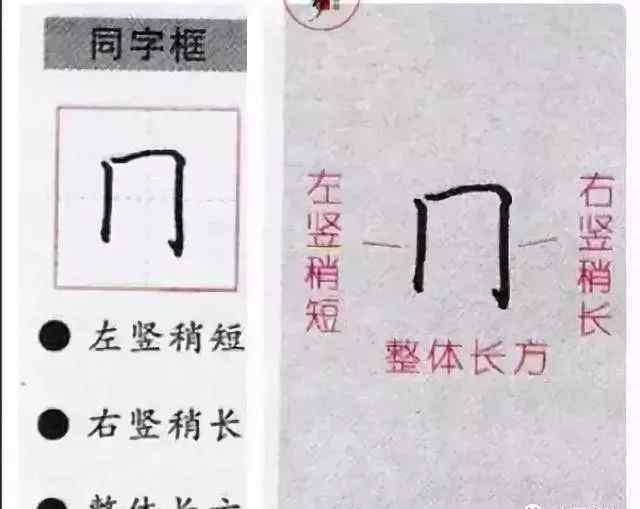 同字框
冂
左竖稍短
右竖稍长
整体长方
左竖稍短
冂
右竖稍长
整体长方